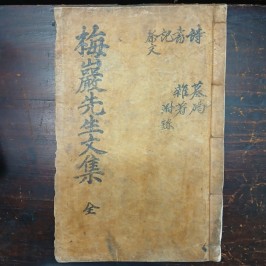 梅巖先生文集 全
詩 墓碣
書 雜著
記 附錄
祭文